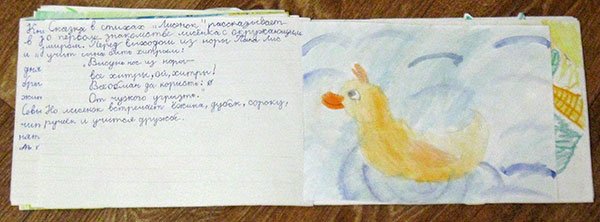 Сказка в стихах „Лисёнок" рассказывает
о первом знакомстве лисёнка с окружающим
миром. Перед выходом из норы Папа Лис
и учит сына быть хитрым.
„Высунься из норы-
все хитри, ой, хитри!
Всё обман да корысть:
От чужого угрызть.
Но лисёнок встречает ёжика, дубок, сороку,
ручей и учится дружбе.